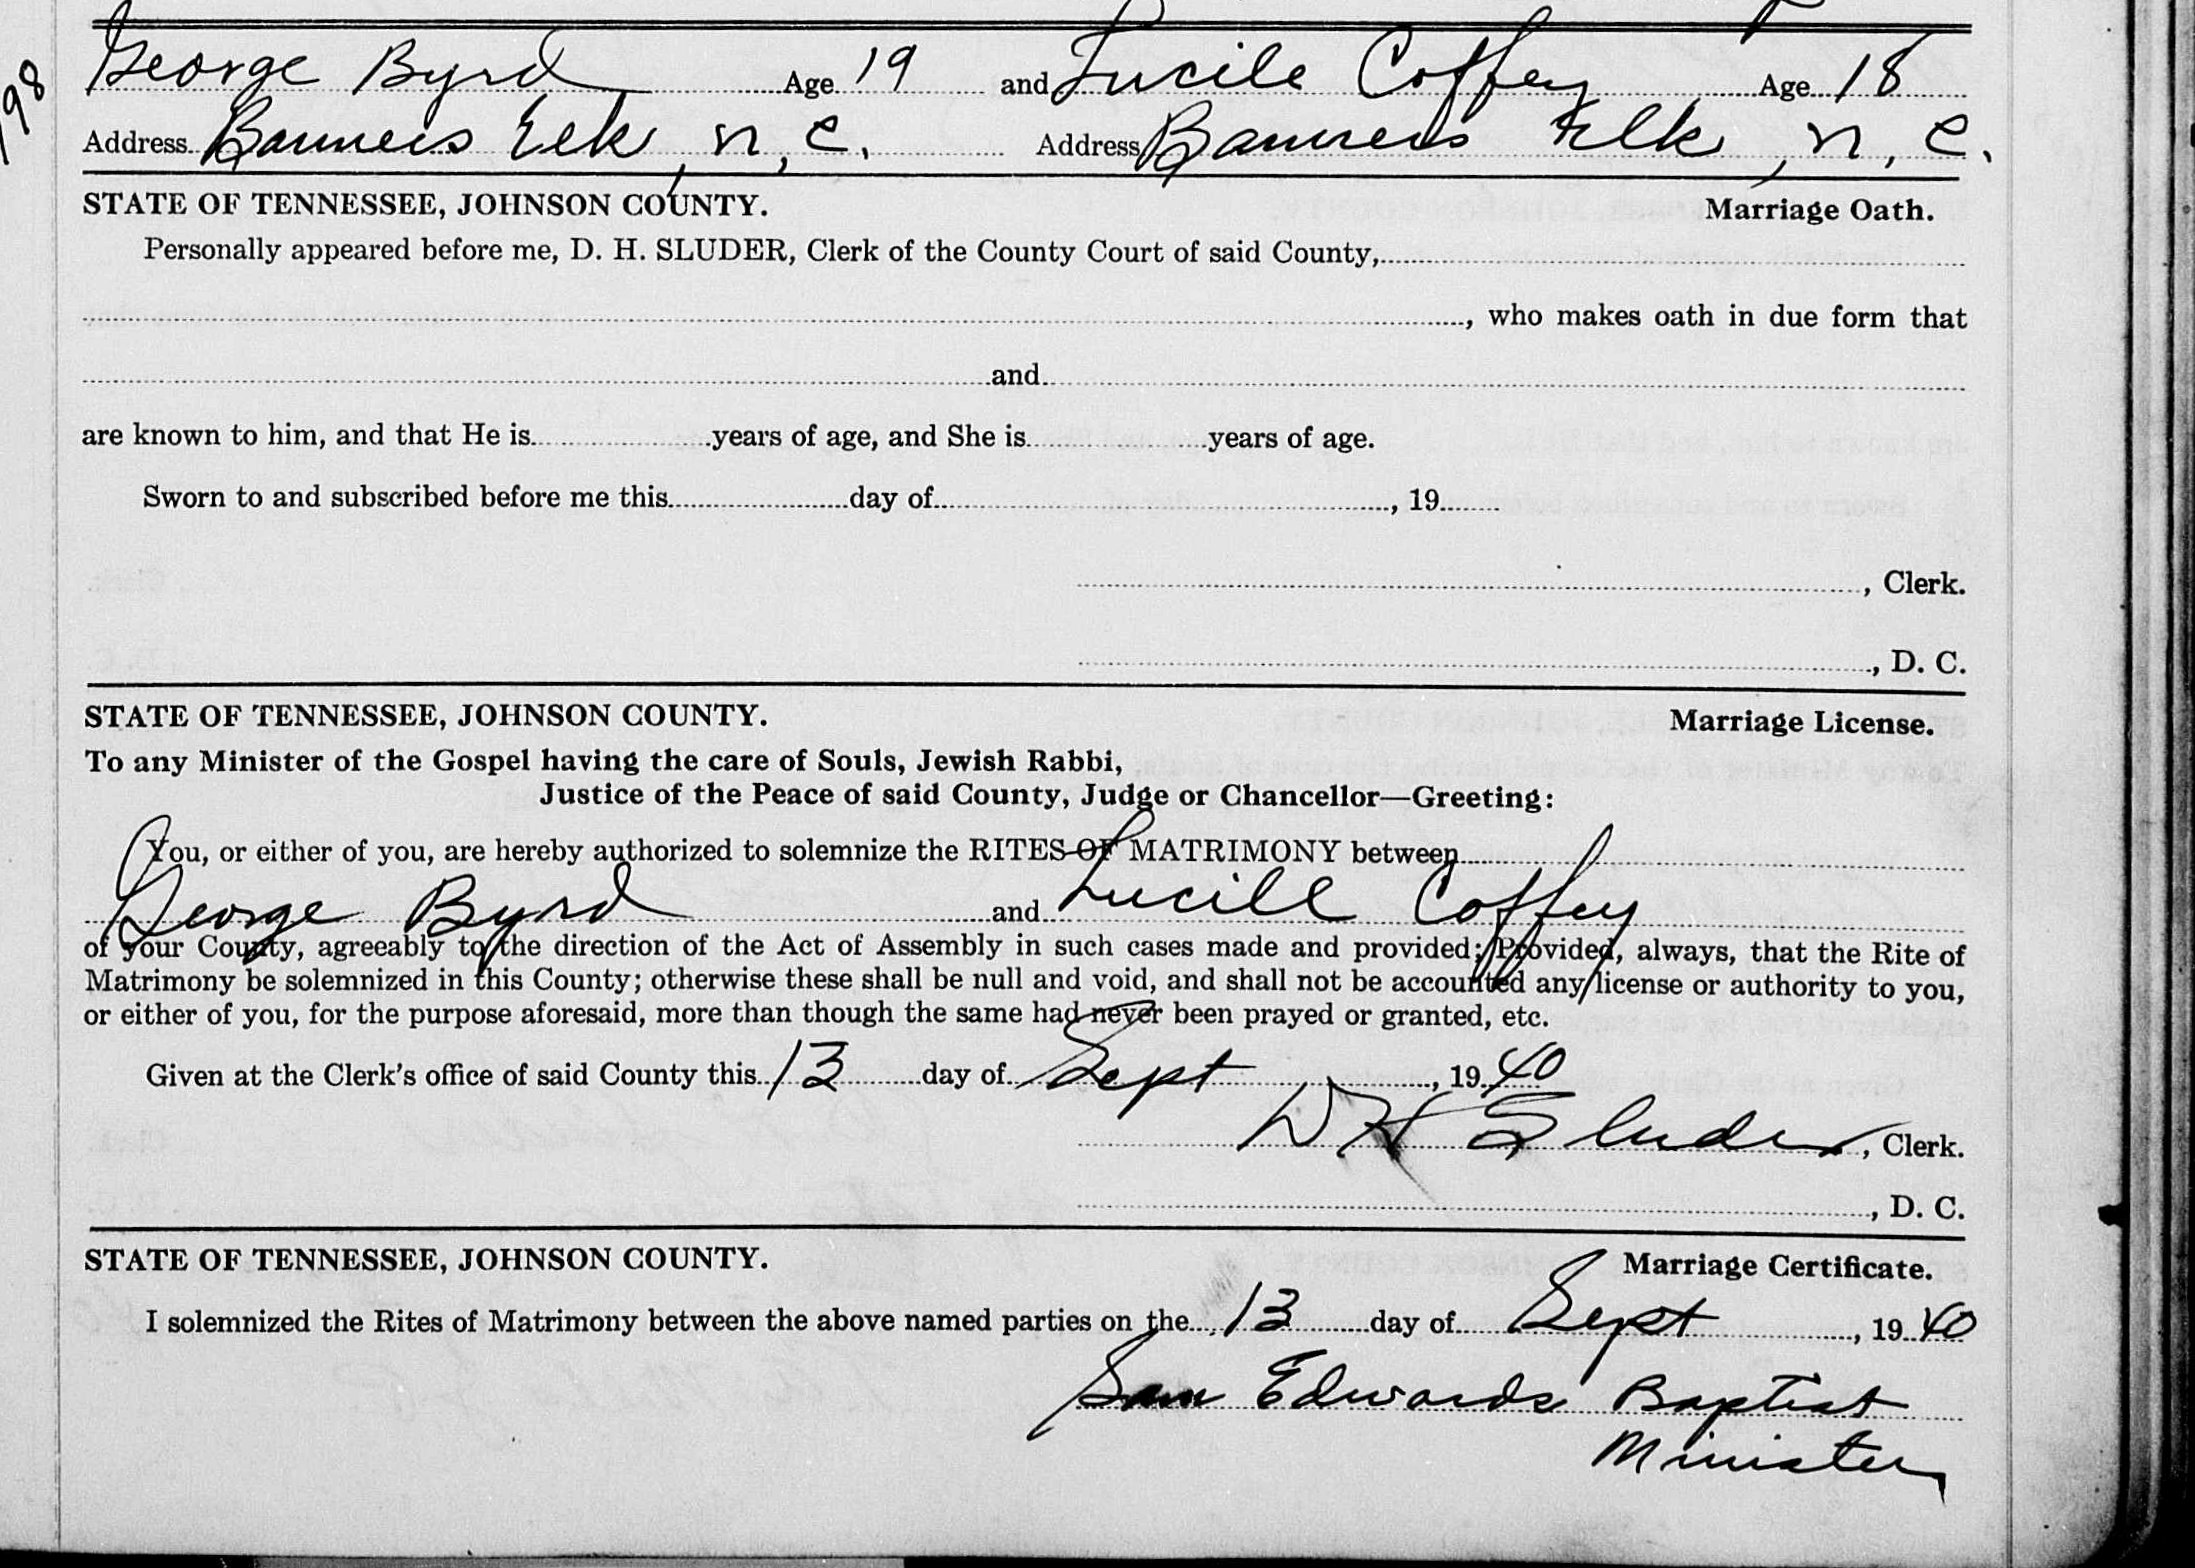 George Byrd Age 19 and Lucile Coffey Age 18
798
Address Banners Elk, N, C. Address Banners Elk, N, C.
STATE OF TENNESSEE, JOHNSON COUNTY. Marriage Oath.
Personally appeared before me, D. H. SLUDER, Clerk of the County Court of said County,
, who makes oath in due form that
and
are known to him, and that He is years of age, and She is years of age.
Sworn to and subscribed before me this day of , 19
, Clerk.
, D. C.
STATE OF TENNESSEE, JOHNSON COUNTY. Marriage License.
To any Minister of the Gospel having the care of Souls, Jewish Rabbi,
Justice of the Peace of said County, Judge or Chancellor—Greeting:
You, or either of you, are hereby authorized to solemnize the RITES OF MATRIMONY between
George Byrd and Lucill Coffey
of your County, agreeably to the direction of the Act of Assembly in such cases made and provided; Provided, always, that the Rite of
Matrimony be solemnized in this County; otherwise these shall be null and void, and shall not be accounted any license or authority to you,
or either of you, for the purpose aforesaid, more than though the same had never been prayed or granted, etc.
Given at the Clerk's office of said County this 13 day of Sept , 19 40
D H Sluder, Clerk.
, D. C.
STATE OF TENNESSEE, JOHNSON COUNTY. Marriage Certificate.
I solemnized the Rites of Matrimony between the above named parties on the 13 day of Sept , 19 40
Sam Edwards Baptist
Minister